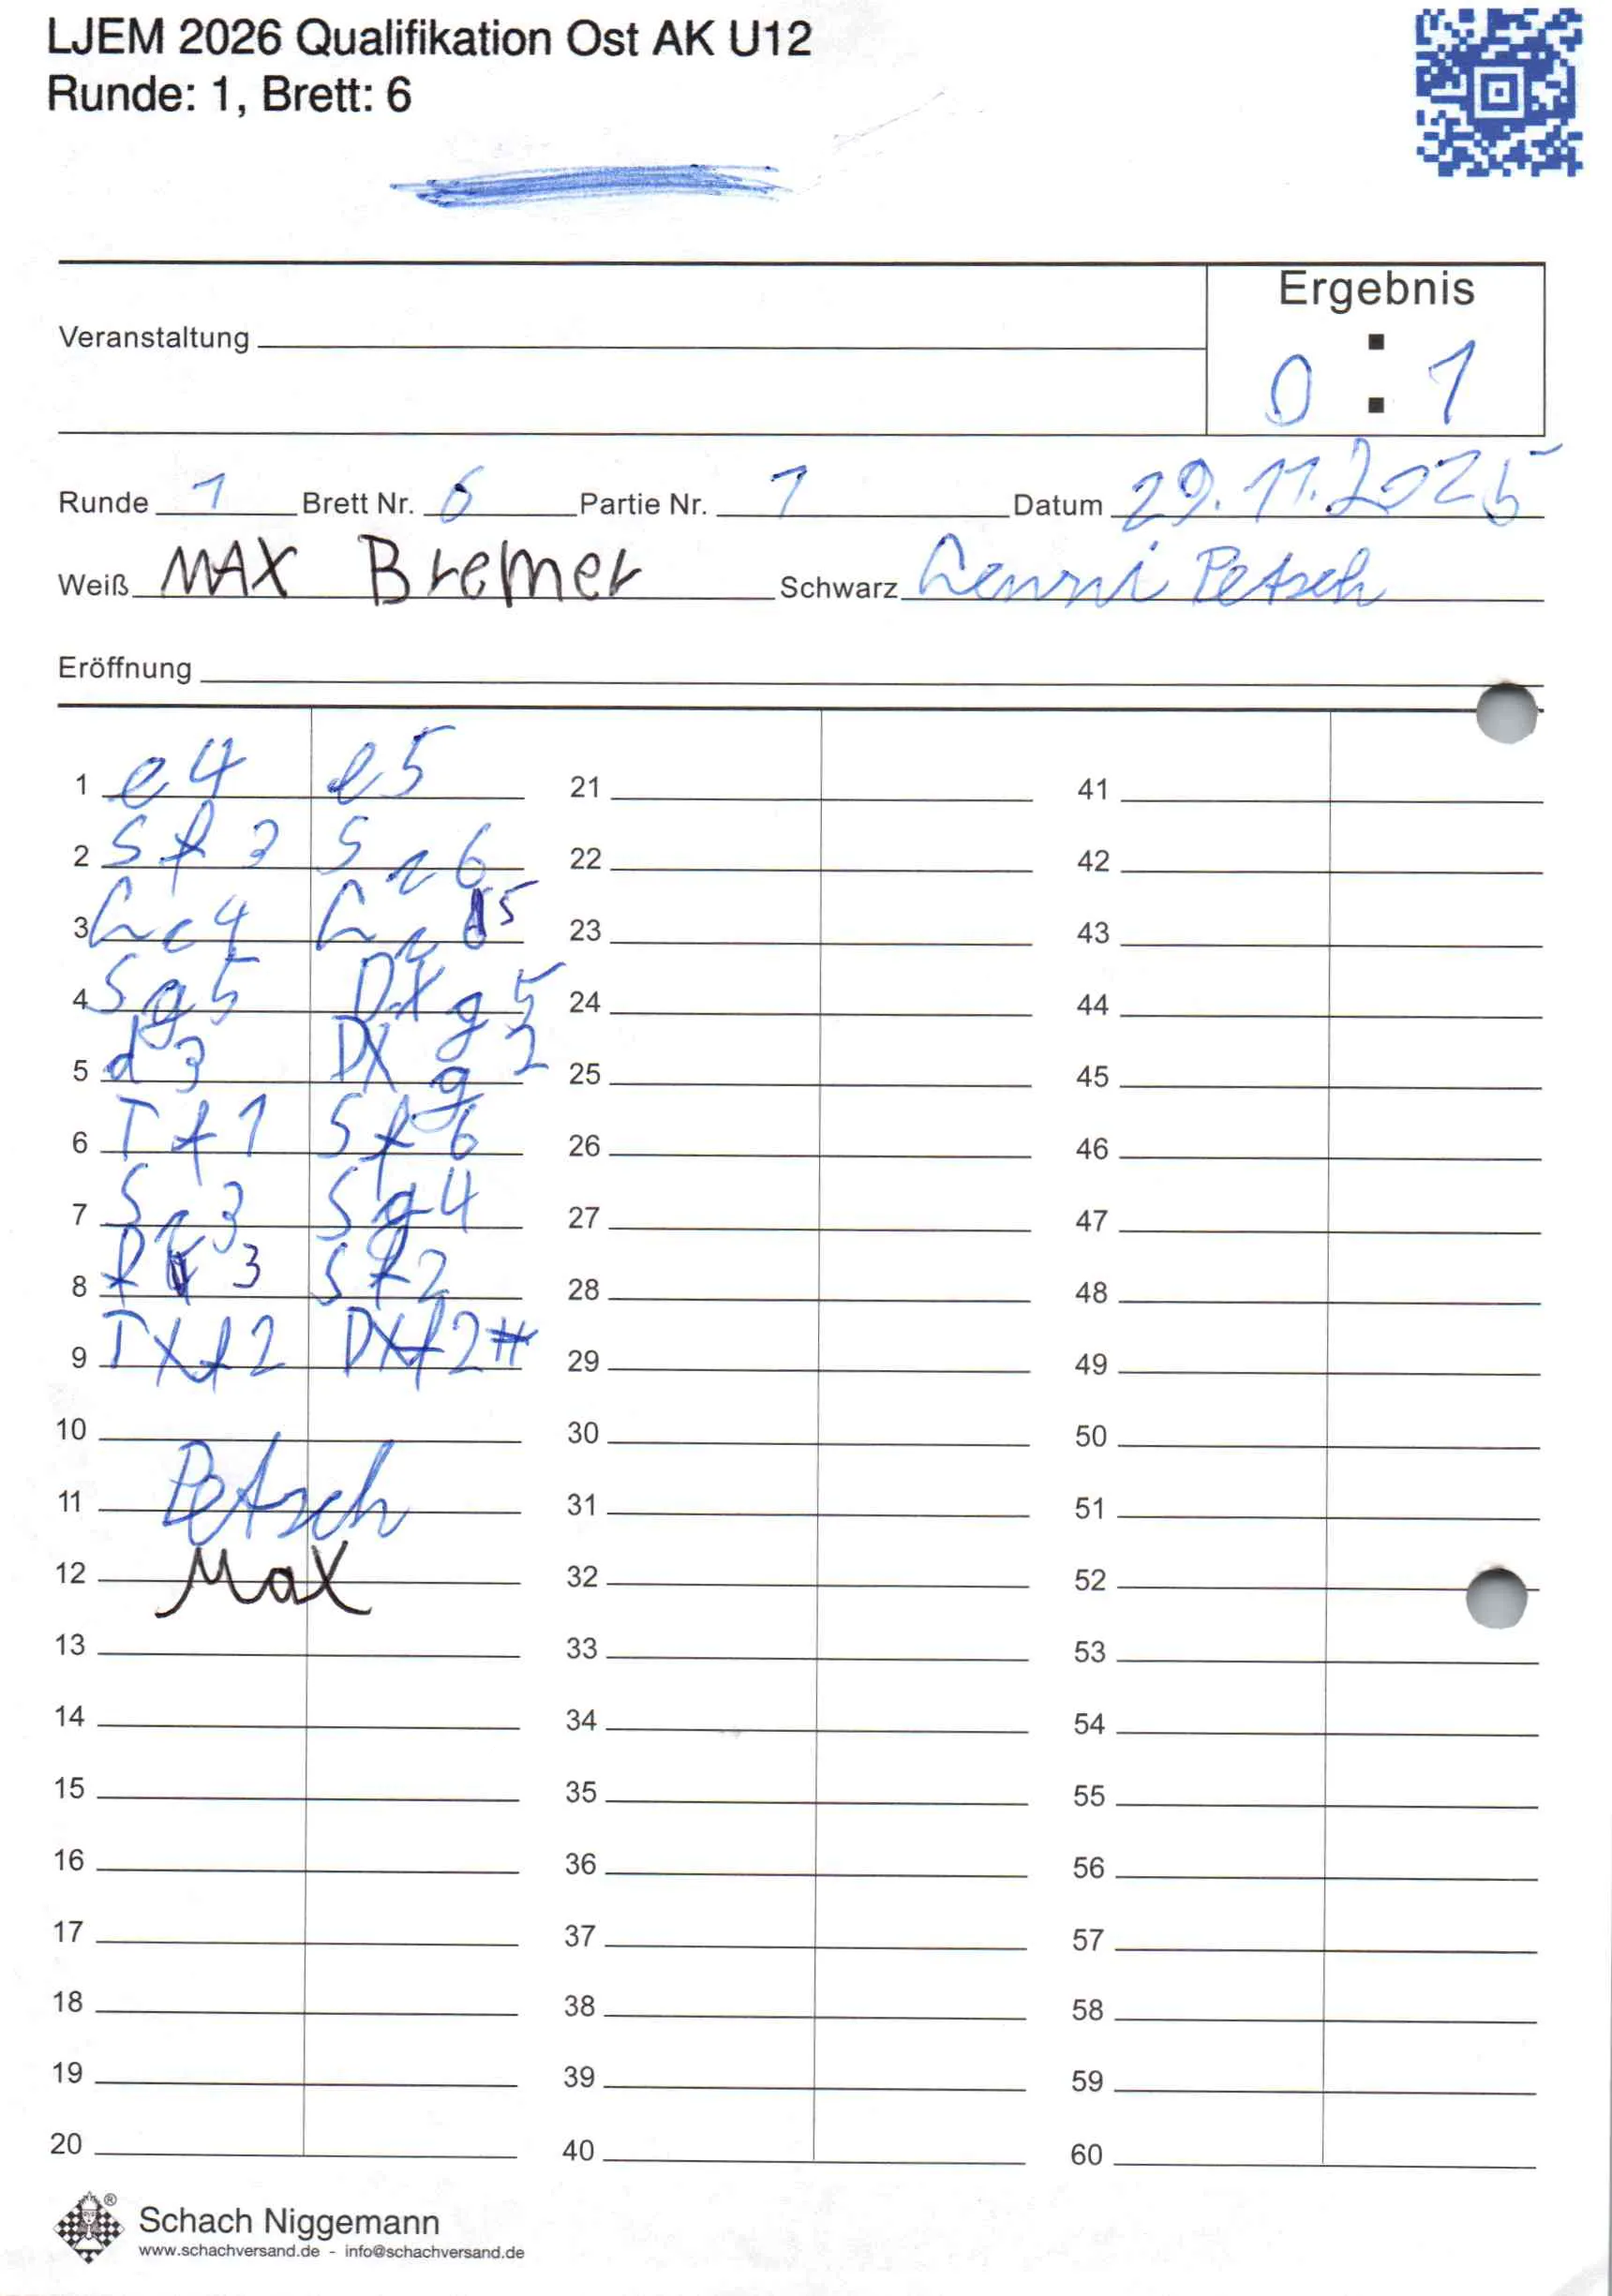 LJEM 2026 Qualifikation Ost AK U12
Runde: 1, Brett: 6
Ergebnis
Veranstaltung
0 : 1
Runde 1 Brett Nr. 6 Partie Nr. 1 Datum 29.11.2025
Weiß MAX Bremer Schwarz Lenni Petsch
Eröffnung
1 e4 e5 21 41
2 Sf3 Sc6 22 42
3 Lc4 Lc5 23 43
4 Sg5 DXg5 24 44
5 d3 DXg2 25 45
6 Tf1 Sf6 26 46
7 Sc3 Sg4 27 47
8 f3 Sf2 28 48
9 TXf2 DXf2# 29 49
10 30 50
11 Petsch 31 51
12 Max 32 52
13 33 53
14 34 54
15 35 55
16 36 56
17 37 57
18 38 58
19 39 59
20 40 60
Schach Niggemann
www.schachversand.de - info@schachversand.de